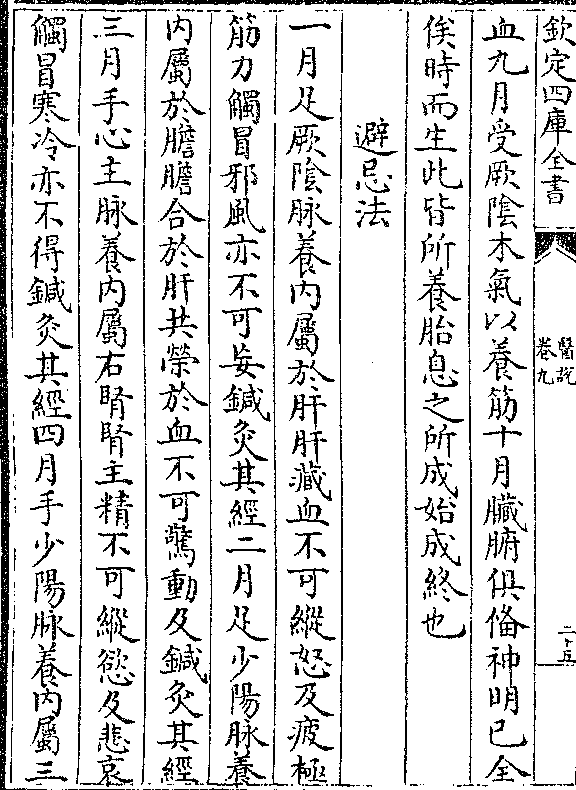 欽定四庫全書
醫説
卷九
二十五
血九月受厥陰木氣以養筋十月臟腑俱備神明已全
俟時而生此皆所養胎息之所成始成終也
避忌法
一月足厥陰脉養内屬於肝肝藏血不可縱怒及疲極
筋力觸冒邪風亦不可妄鍼灸其經二月足少陽脉養
内屬於膽膽合於肝共榮於血不可驚動及鍼灸其經
三月手心主脉養内屬右腎腎主精不可縱慾及悲哀
觸冒寒冷亦不得鍼灸其經四月手少陽脉養内屬三